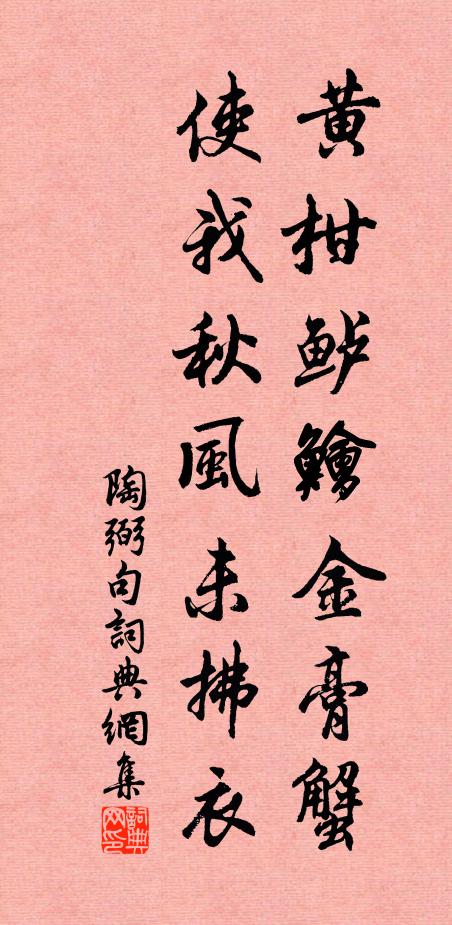 黄柑鲈鱠金膏蟹
使我秋風未拂衣
陶弼句詞典網集
詞典網印